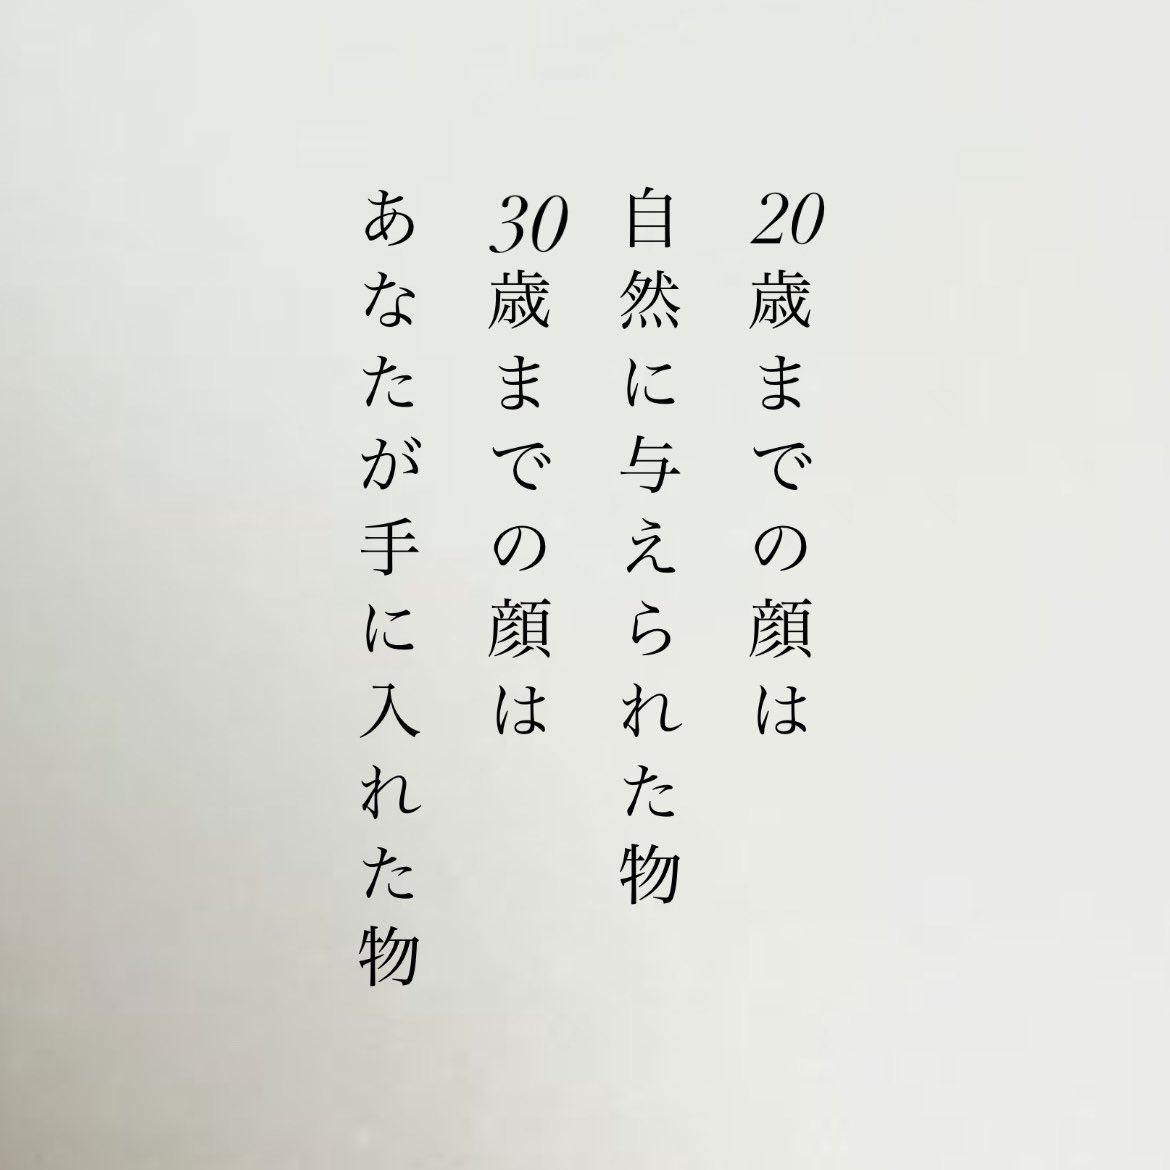 20歳までの顔は
自然に与えられた物
30歳までの顔は
あなたが手に入れた物